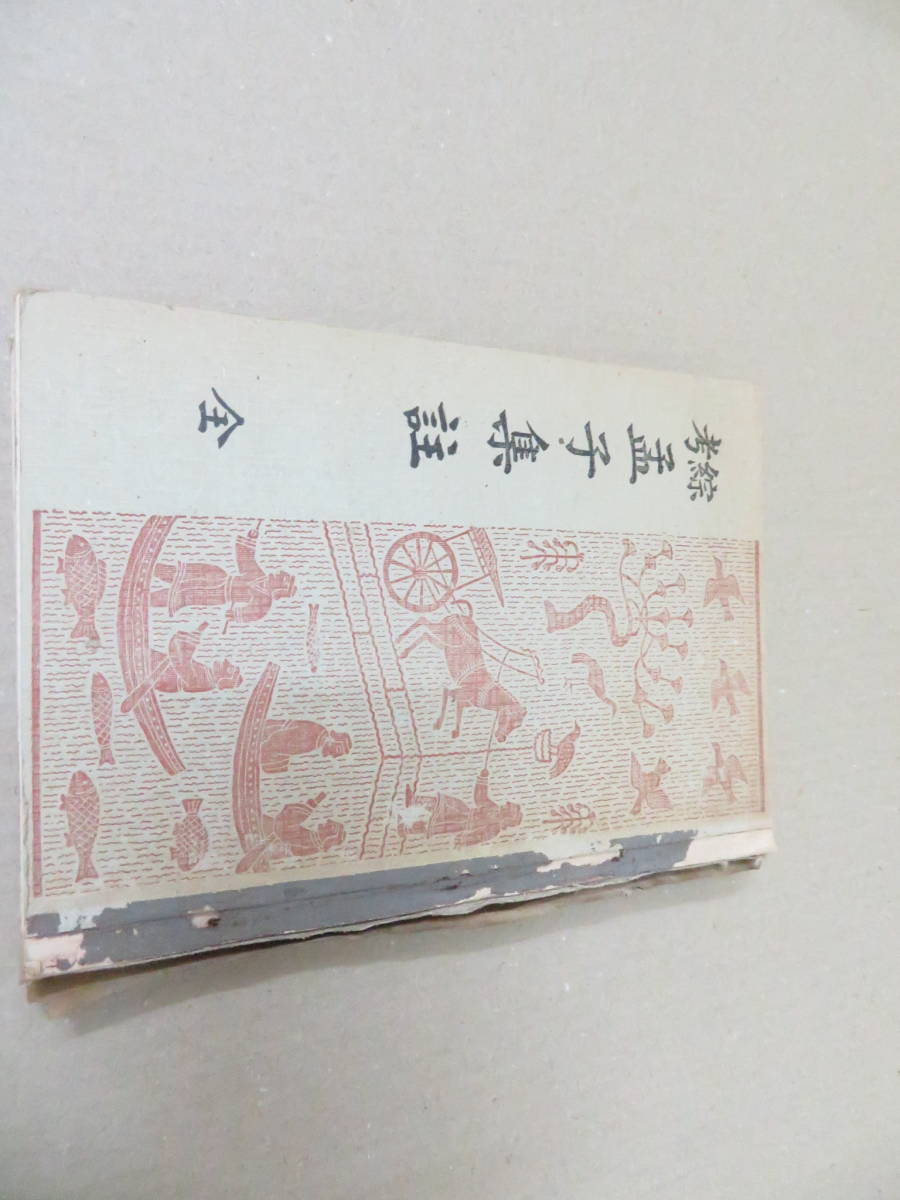 綜考孟子集註 全